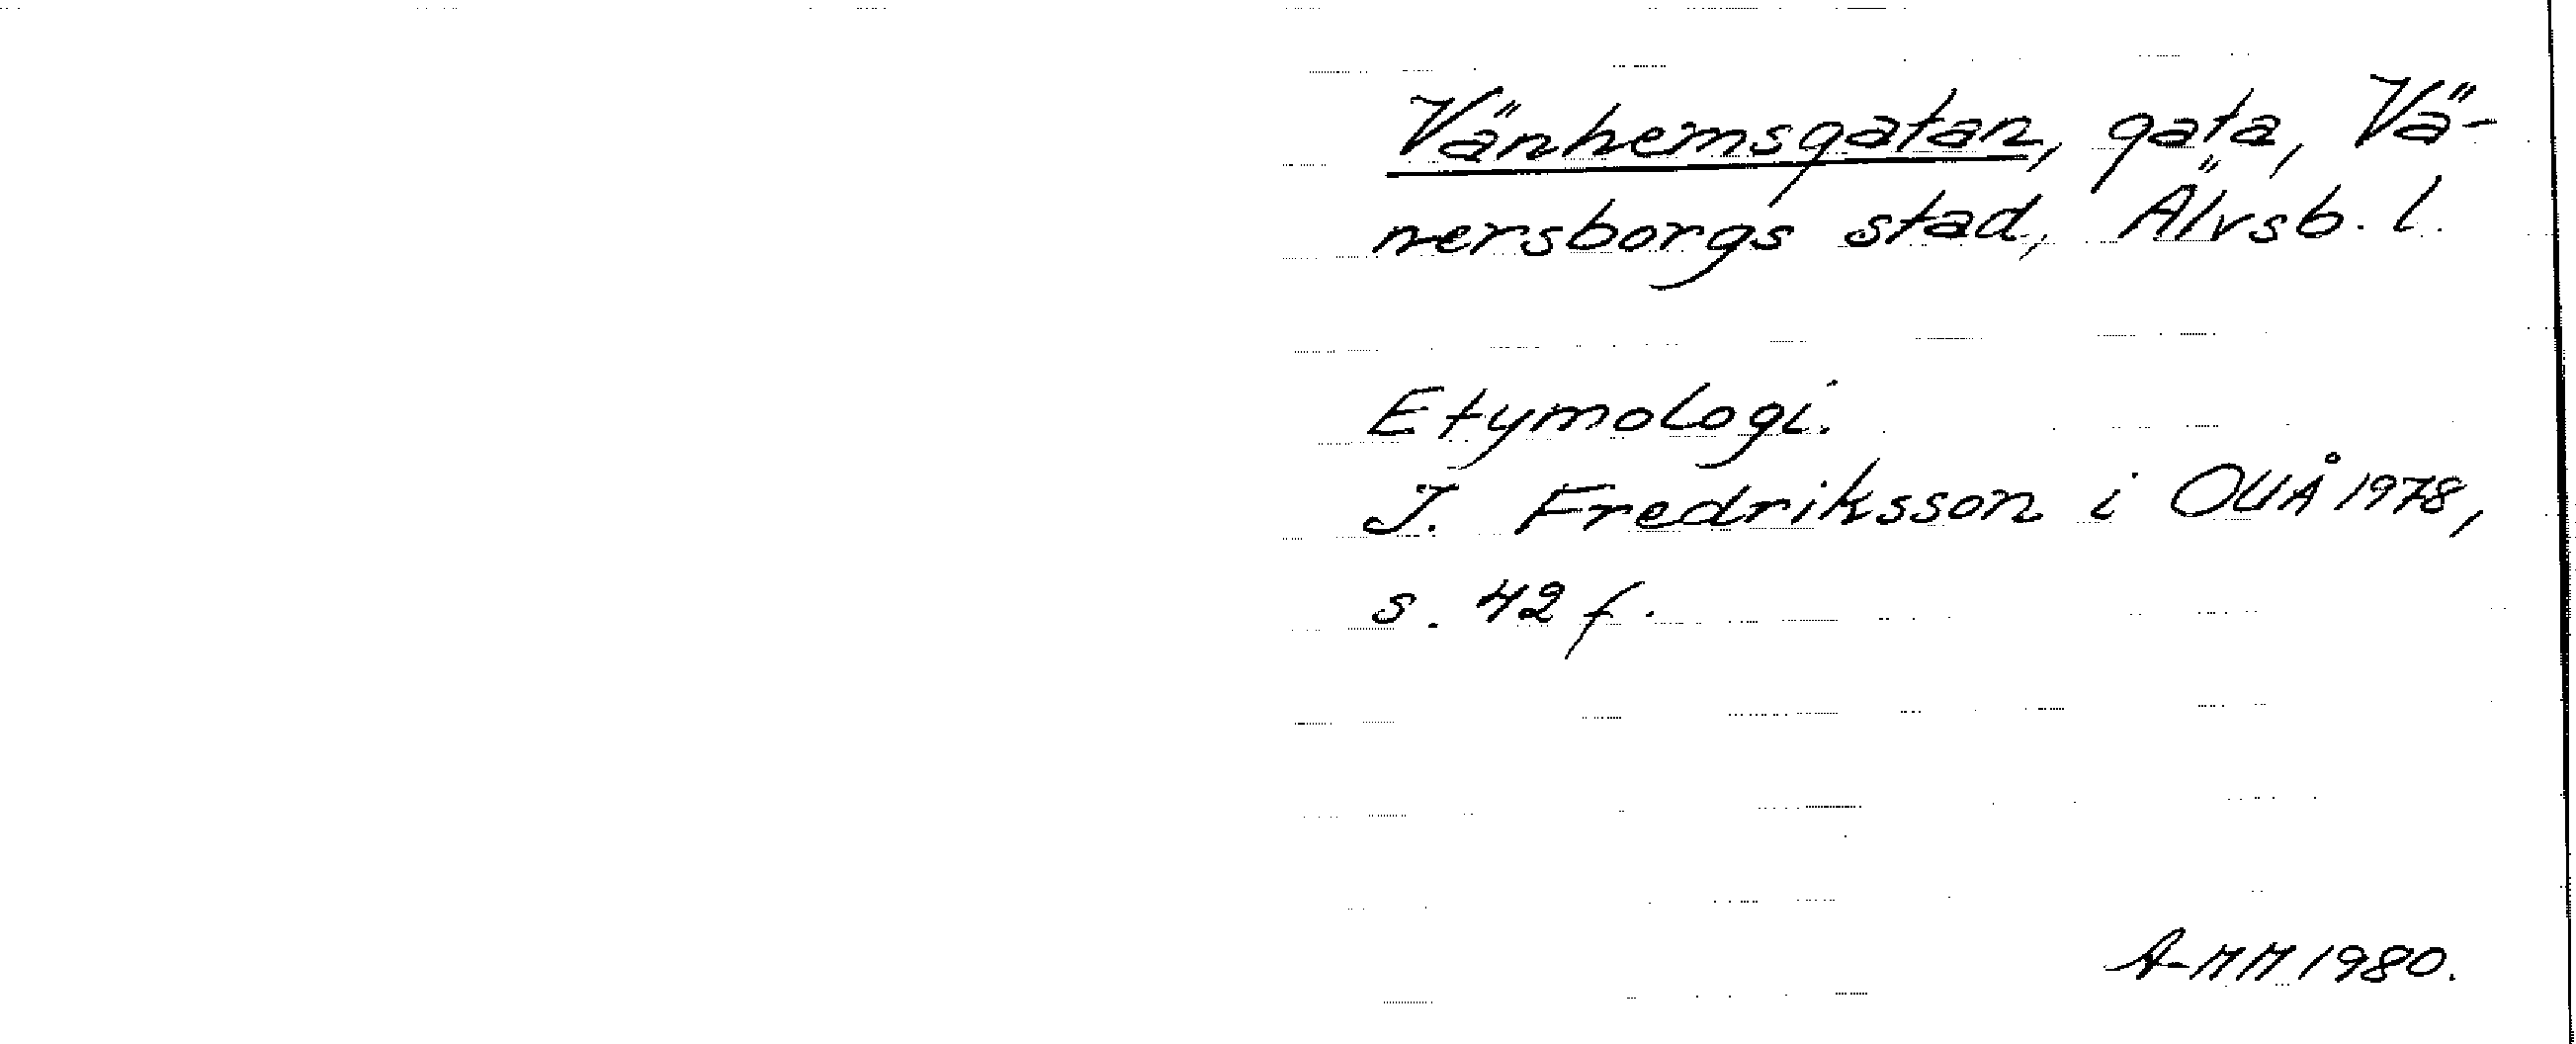 Vänhemsgatan, gata, Vä-
nersborgs stad, Älvsb. l.
Etymologi.
I. Fredriksson i OUÅ 1978,
s. 42 f.
A-MM 1980.